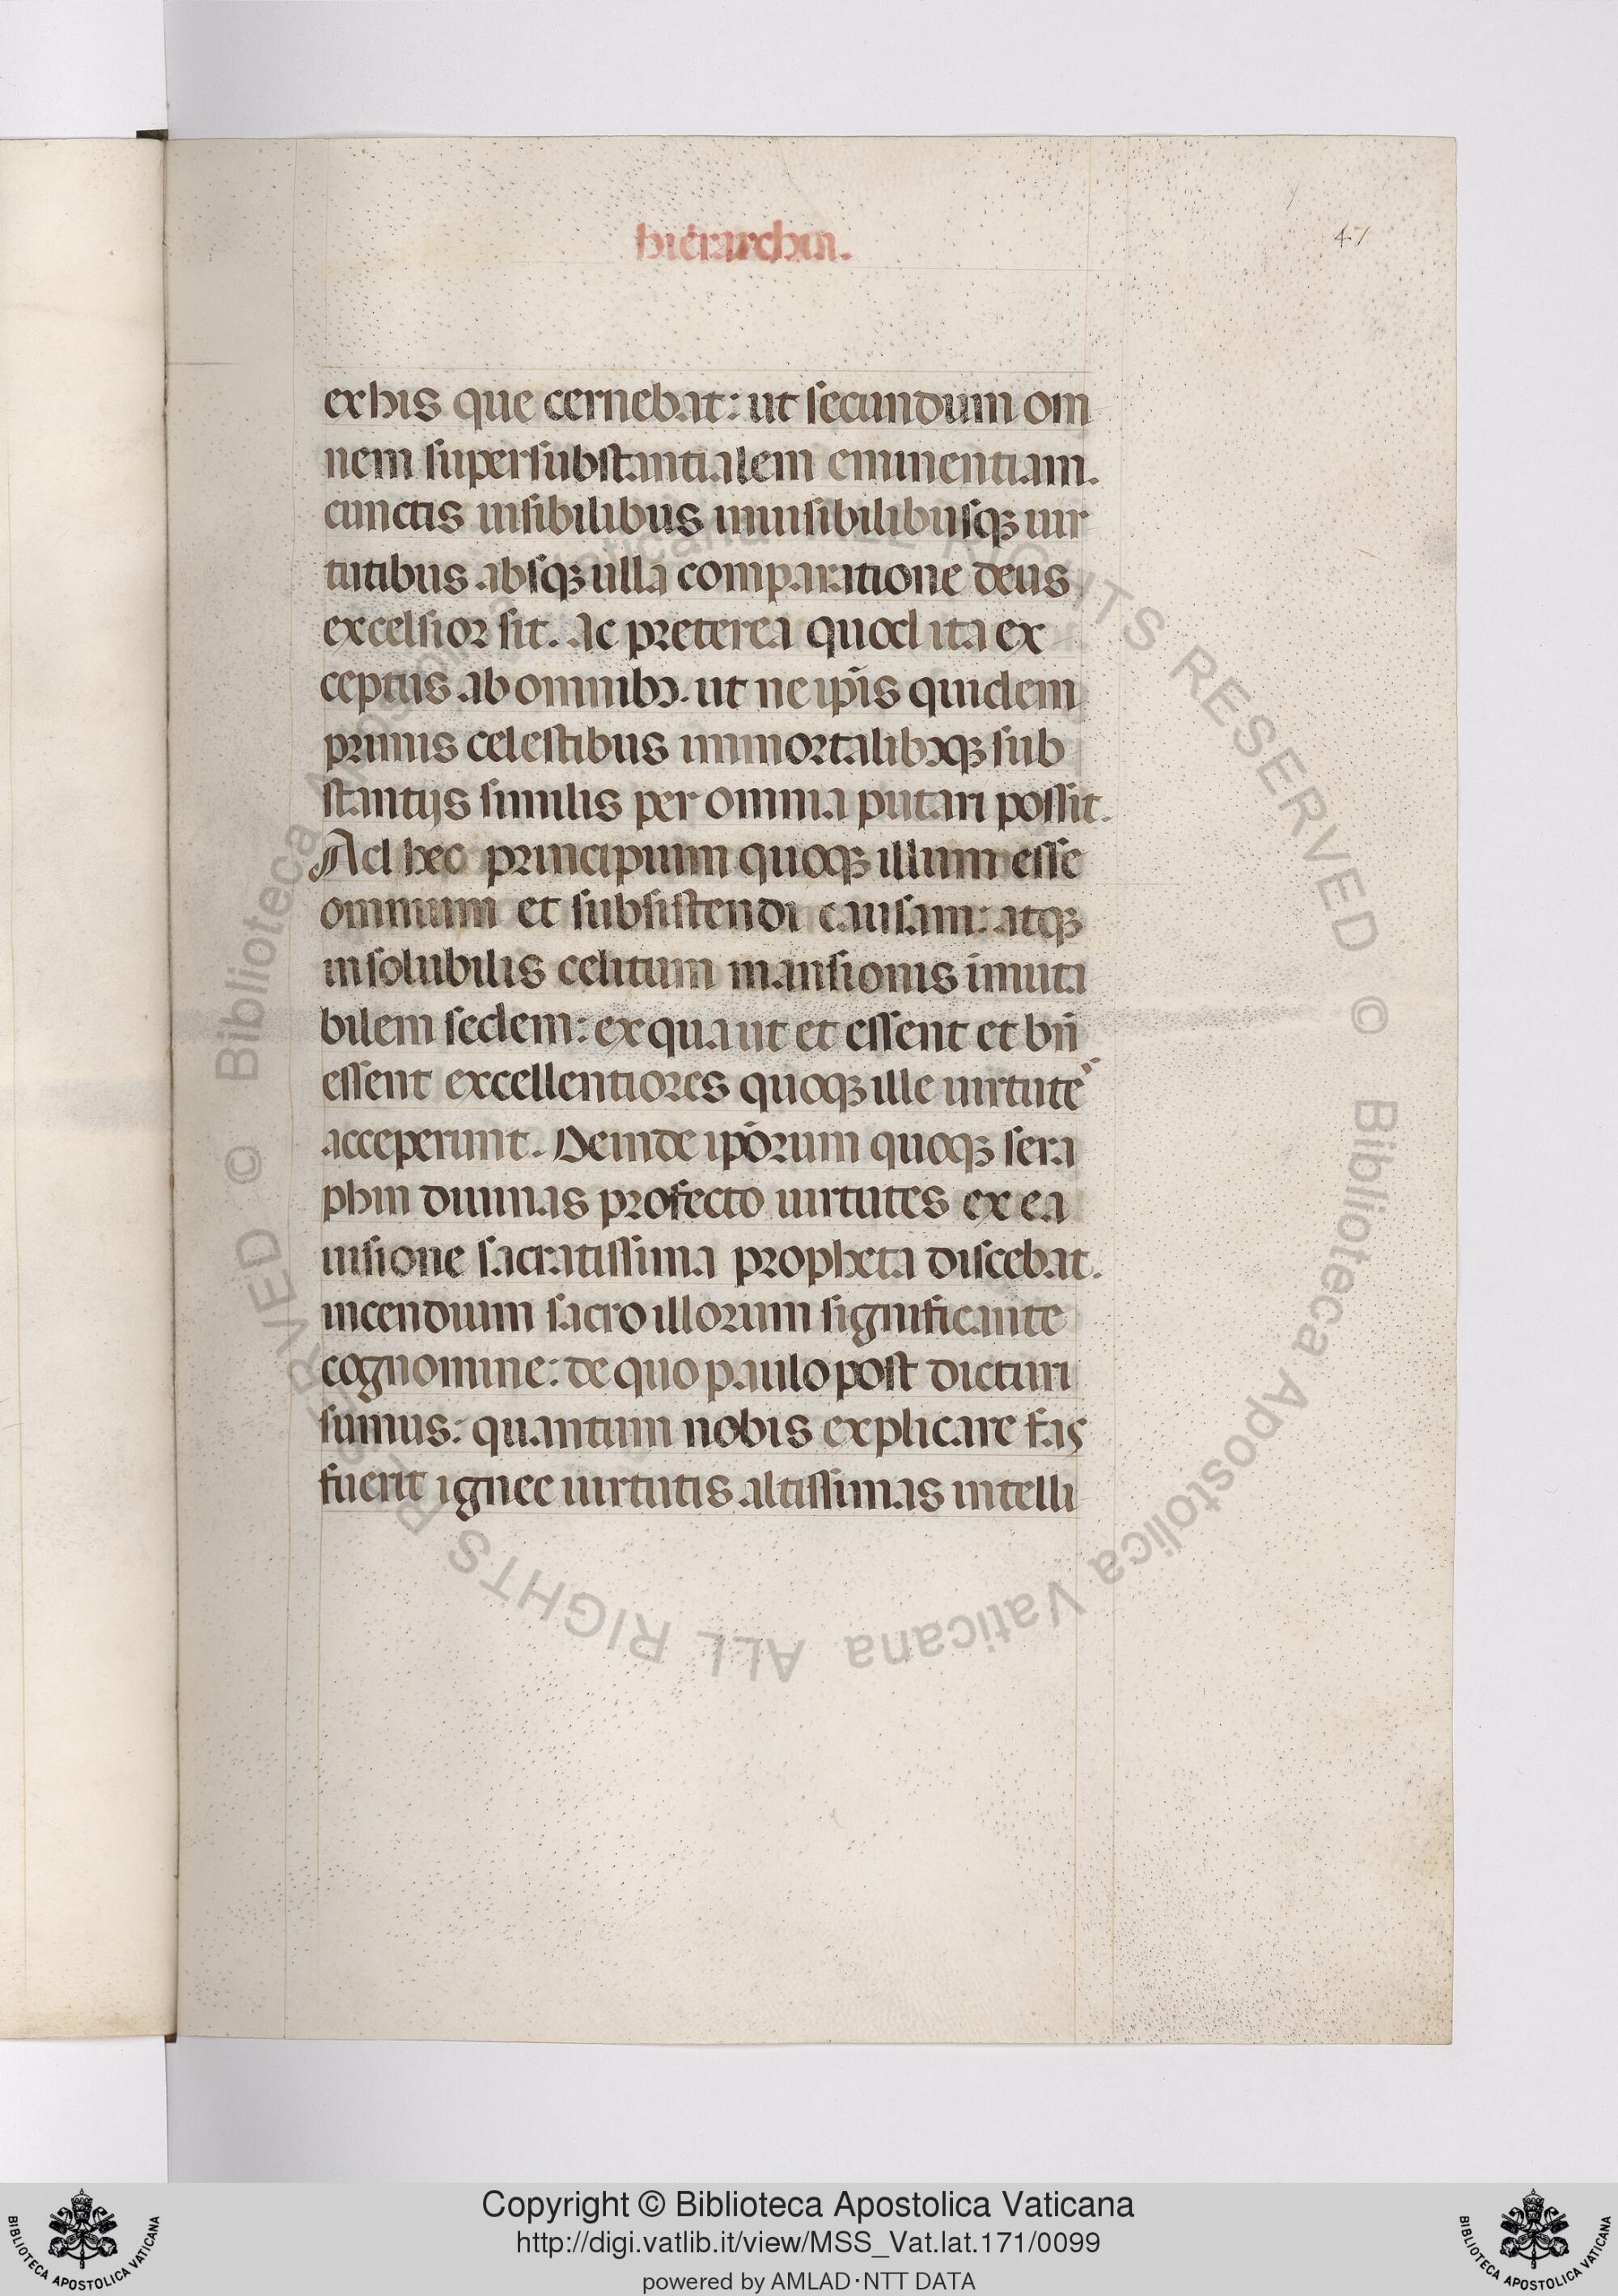 hiérarchia.
47
ex his que cernebat: ut secundum om
nem supersubstantialem eminentiam.
cunctis uisibilibus inuisibilibusqꝫ uir
tutibus absqꝫ ulla comparatione deus
excelsior sit. Ac preterea quod ita ex
ceptus ab omnibꝫ. ut ne ip̄is quidem
primis celestibus immortalibꝫqꝫ sub
stantijs similis per omnia putari possit.
Ad hec principium quoqꝫ illum esse
omnium et subsistendi causam: atqꝫ
insolubilis celitum mansionis īmuta
bilem sedem: ex qua ut et essent et bn̄
essent excellentiores quoqꝫ ille uirtutes
acceperunt. Deinde ip̄orum quoqꝫ sera
phin diuinas profecto uirtutes ex ea
uisione sacratissima propheta discebat.
incendium sacro illorum significante
cognomine: de quo paulo post dicturi
sumus: quantum nobis explicare fas
fuerit ignee uirtutis altissimas intelli
© Biblioteca Apostolica Vaticana ALL RIGHTS RESERVED © Biblioteca Apostolica Vaticana ALL RIGHTS RESERVED
Copyright © Biblioteca Apostolica Vaticana
http://digi.vatlib.it/view/MSS_Vat.lat.171/0099
powered by AMLAD·NTT DATA
BIBLIOTECA APOSTOLICA VATICANA
BIBLIOTECA APOSTOLICA VATICANA